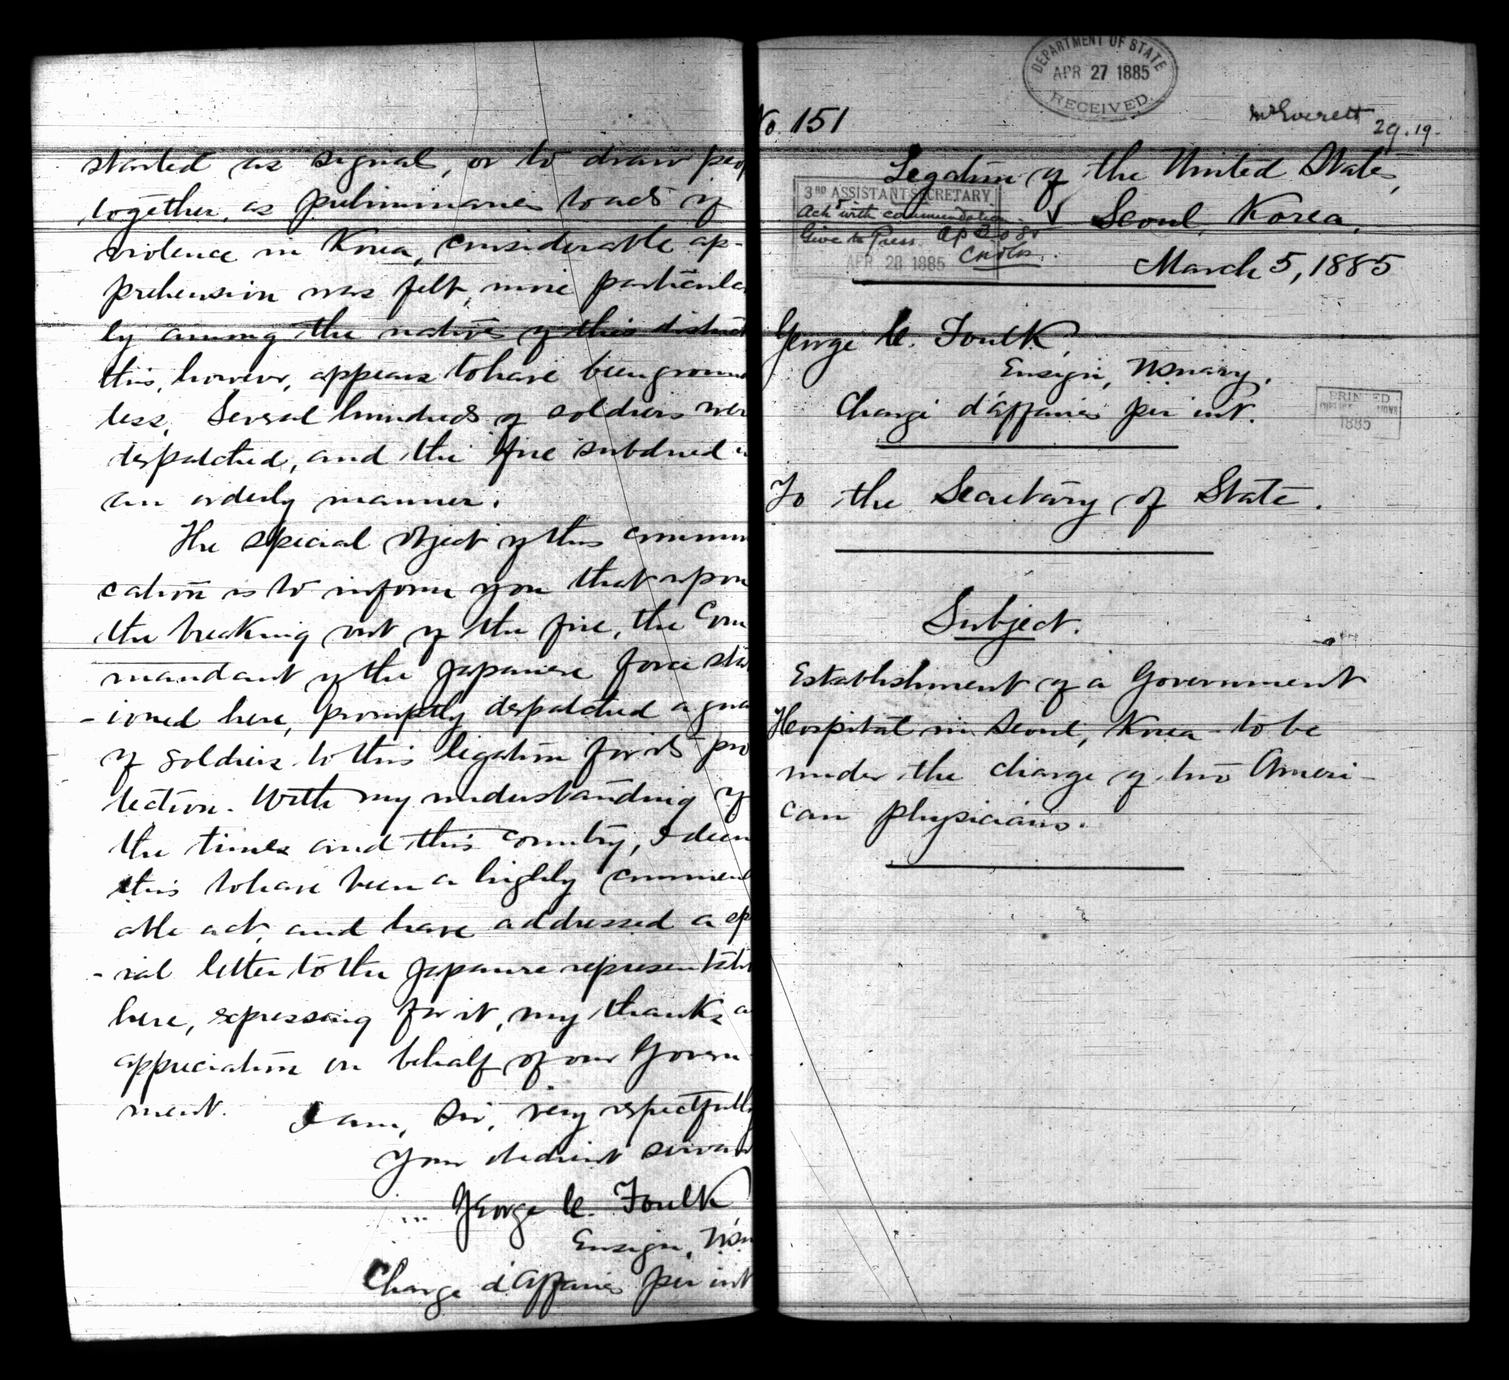 started as signal, or to draw peop
together, as preliminaries to acts of
violence in Korea, considerable ap-
prehension was felt, more particular
ly among the natives of this district
this, however, appears to have been ground
less. Several hundreds of soldiers wer
despatched, and the fire subdued i
an orderly manner.
The special object of this commun
cation is to inform you that upon
the breaking out of the fire, the Com
mandant of the Japanese force stat
-ioned here, promptly despatched a gua
of soldiers to this legation for its pro
tection. With my understanding of
the times and this country, I deem
this to have been a highly commend
able act, and have addressed a spe
-ial letter to the Japanese representati
here, expressing for it, my thanks a
appreciation on behalf of our Govern-
ment.
I am, Sir, very respectfully
Your obedient servant
George C. Foulk
Ensign, U.S.n
Charge d'Affaires per int
DEPARTMENT OF STATE
APR 27 1885
RECEIVED.
No. 151
Mr Everett
29.19.
Legation of the United States,
Seoul, Korea,
March 5, 1885
3RD ASSISTANT SECRETARY
Ack with commendation
Give to Press.
APR 28 1885
George C. Foulk,
Ensign, U.S. navy,
Chargé d'affaires per int.
PRINTED
1885
To the Secretary of State.
Subject.
Establishment of a Government
Hospital in Seoul, Korea - to be
under the charge of two Ameri-
can physicians.